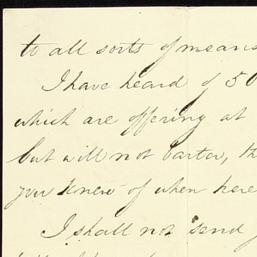 to all sorts of means
I have heard of 50
which are offering at
but will not barter, th
you knew of when here
I shall not send